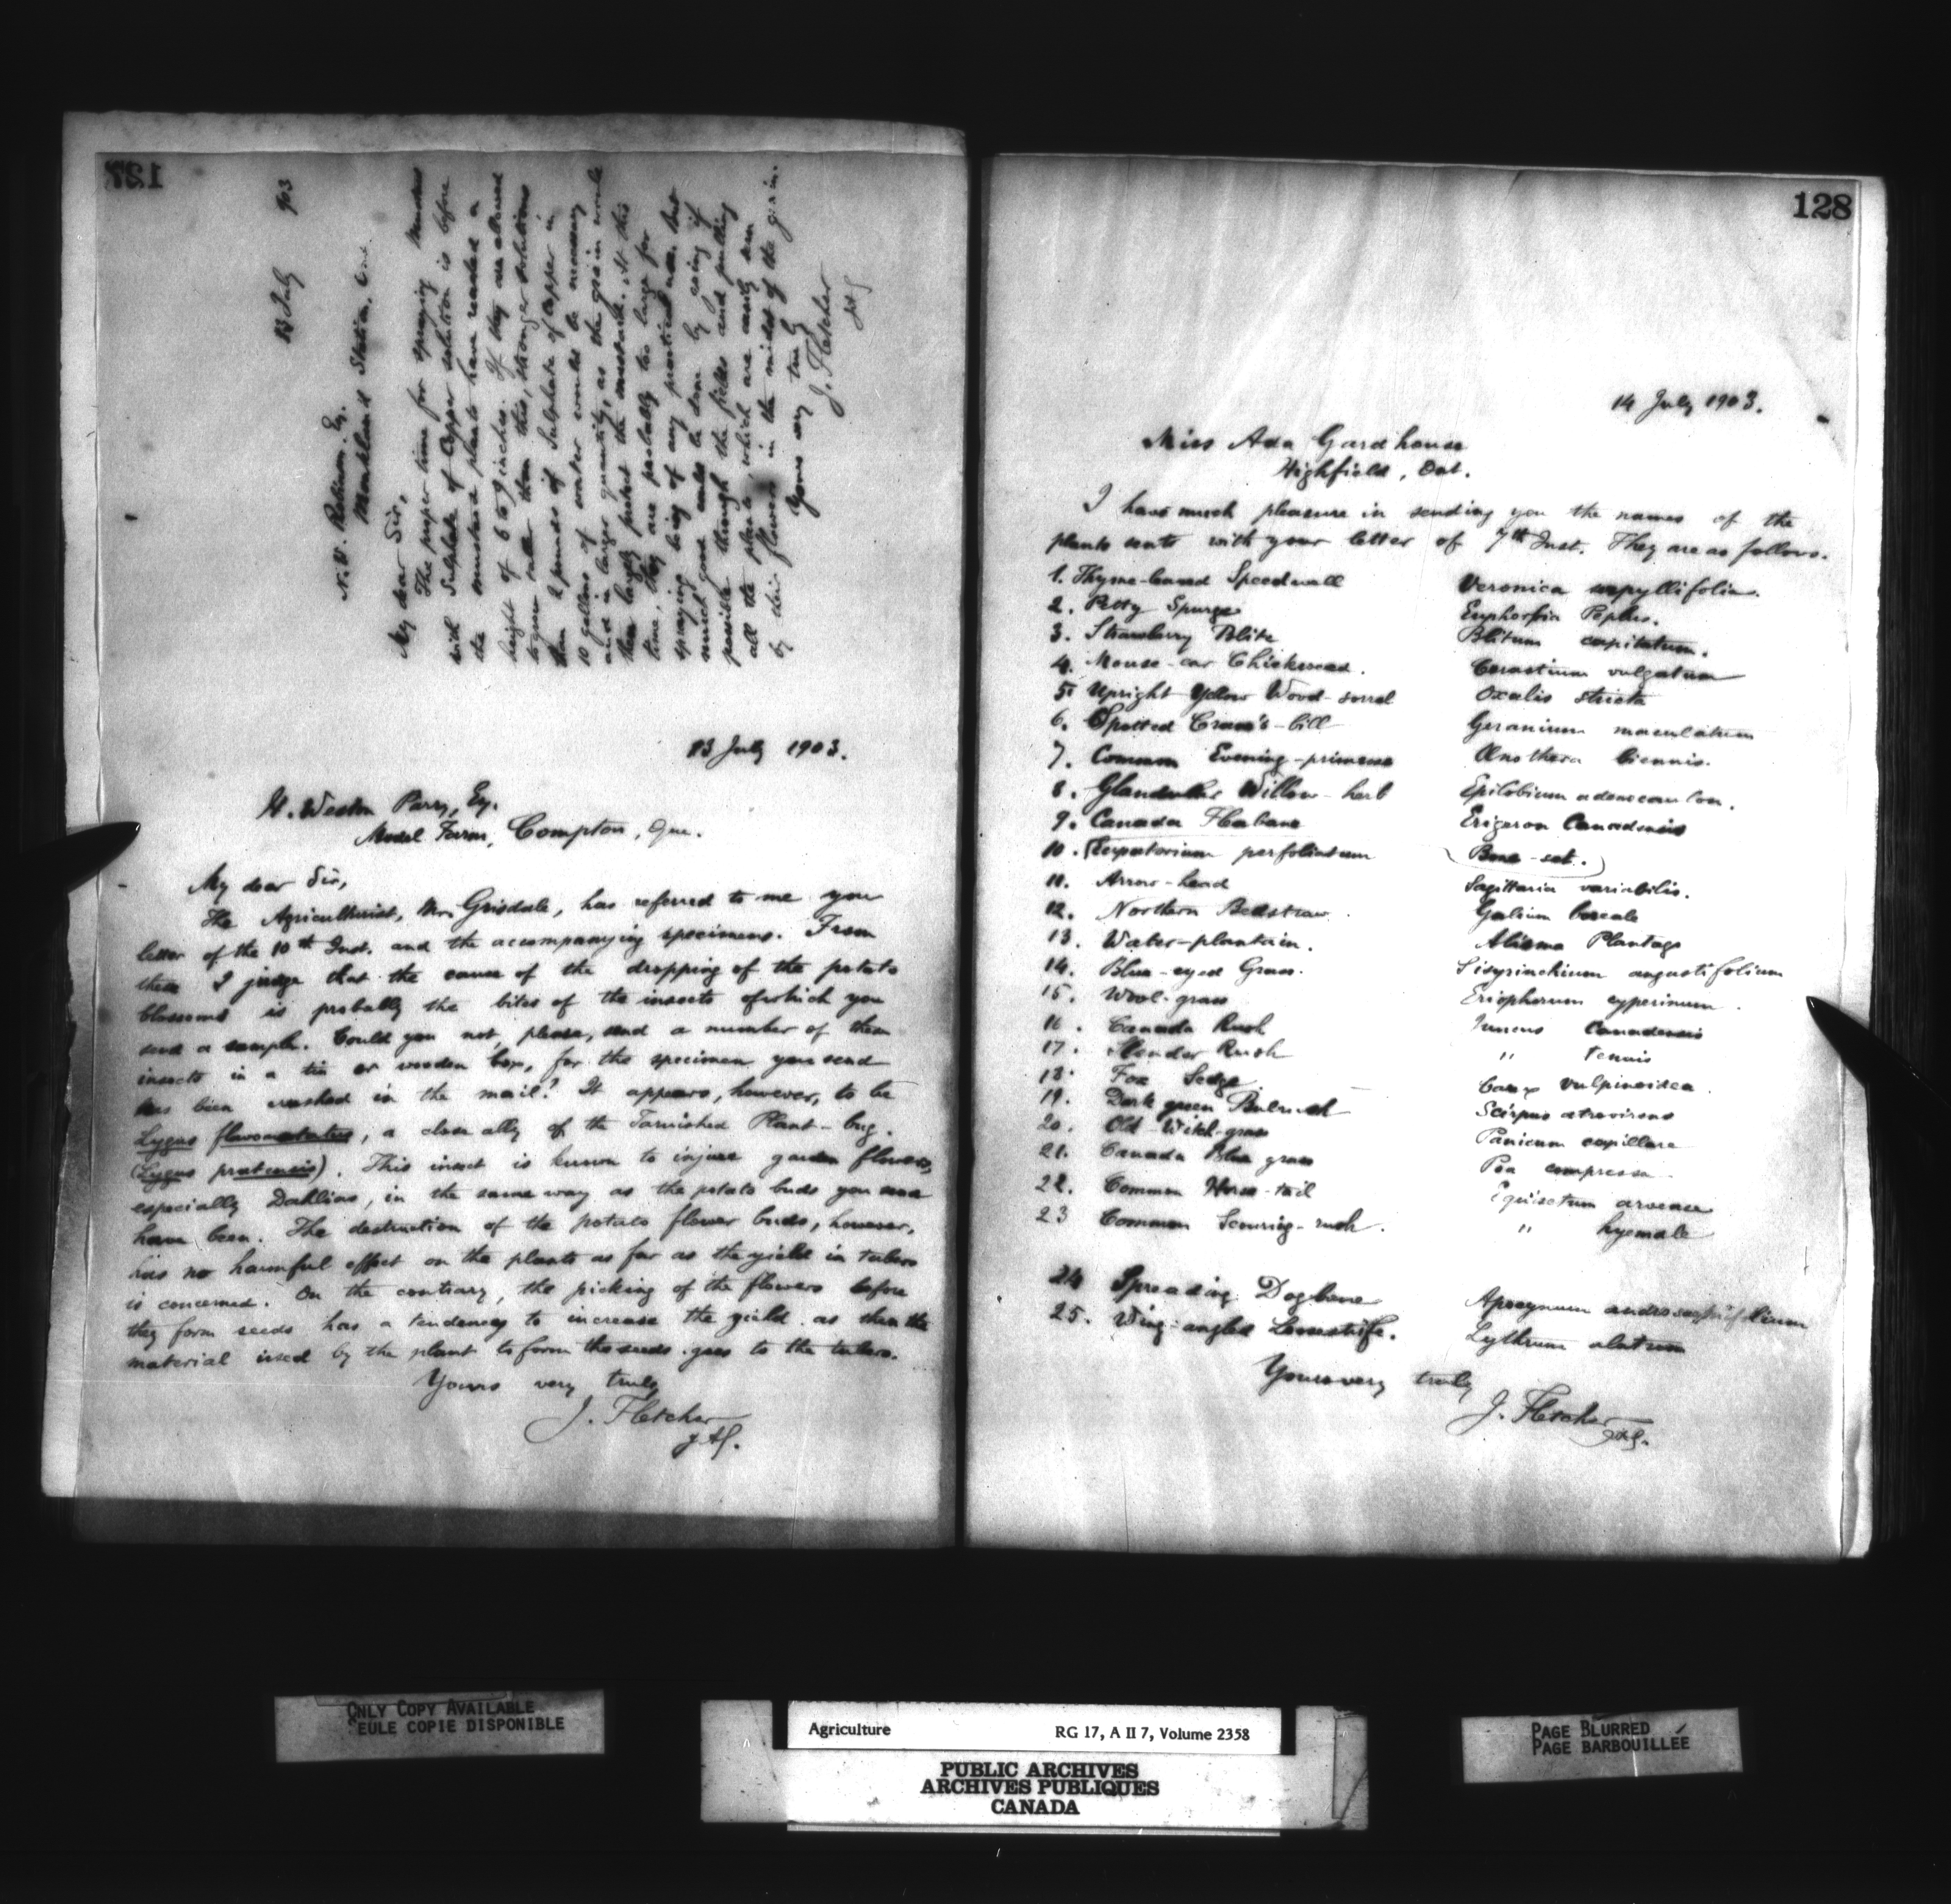 127
13 July 903
N. W. Robinson, Esq.
Markland Station, Ont.
My dear Sir,
The proper time for spraying mustard
with Sulphate of Copper solution is before
the mustard plants have reached a
height of 6 to 9 inches. If they are allowed
to grow taller than this, stronger solutions
than 2 pounds of Sulphate of Copper in
10 gallons of water would be necessary
and in larger quantity, as the grain would
then largely protect the mustard. At this
time, they are probably too large for
spraying being of any practical use, but
much good could be done by going if
possible through the fields and pulling
all the plants, which are easily seen
by their flowers in the midst of the grain.
Yours very truly
J. Fletcher
13 July 1903.
H. Weston Parry, Esq.
Model Farm, Compton, Que.
My dear Sir,
The Agriculturist, Mr. Grisdale, has referred to me your
letter of the 10th Inst. and the accompanying specimens. From
these I judge that the cause of the dropping of the potato
blossoms is probably the bites of the insects of which you
send a sample. Could you not, please, send a number of these
insects in a tin or wooden box, for the specimen you send
has been crushed in the mail? It appears, however, to be
Lygus flavomaculatus, a close ally of the Tarnished Plant-bug.
(Lygus pratensis). This insect is known to injure garden flowers,
especially Dahlias, in the same way as the potato buds you send
have been. The destruction of the potato flower buds, however,
has no harmful effect on the plants as far as the yield in tubers
is concerned. On the contrary, the picking of the flowers before
they form seeds has a tendency to increase the yield as then the
material used by the plant to form the seeds goes to the tubers.
Yours very truly
J. Fletcher
128
14 July 1903.
Miss Ada Gardhouse
Highfield, Ont.
I have much pleasure in sending you the names of the
plants sent with your letter of 7th Inst. They are as follows.
1. Thyme-leaved Speedwell Veronica serpyllifolia.
2. Petty Spurge Euphorbia Peplus.
3. Strawberry Blite Blitum capitatum.
4. Mouse-ear Chickweed. Cerastium vulgatum
5. Upright Yellow Wood-sorrel Oxalis stricta
6. Spotted Crane's-bill Geranium maculatum
7. Common Evening-primrose Œnothera biennis.
8. Glandular Willow-herb Epilobium adenocaulon.
9. Canada Fleabane Erigeron Canadensis
10. (Eupatorium perfoliatum Bone-set.)
11. Arrow-head Sagittaria variabilis.
12. Northern Bedstraw. Galium boreale
13. Water-plantain. Alisma Plantago
14. Blue-eyed Grass. Sisyrinchium angustifolium
15. Wool-grass Eriophorum cyperinum.
16. Canada Rush Juncus Canadensis
17. Slender Rush " tenuis
18. Fox Sedge Carex vulpinoidea.
19. Dark green Bulrush Scirpus atrovirens
20. Old-Witch-grass Panicum capillare
21. Canada Blue grass Poa compressa
22. Common Horse-tail Equisetum arvense
23 Common Scouring-rush. " hyemale
24 Spreading Dogbane Apocynum androsaemifolium
25. Wing-angled Loosestrife. Lythrum alatum
Yours very truly
J. Fletcher
ONLY COPY AVAILABLE
SEULE COPIE DISPONIBLE
Agriculture RG 17, A II 7, Volume 2358
PUBLIC ARCHIVES
ARCHIVES PUBLIQUES
CANADA
PAGE BLURRED
PAGE BARBOUILLÉE